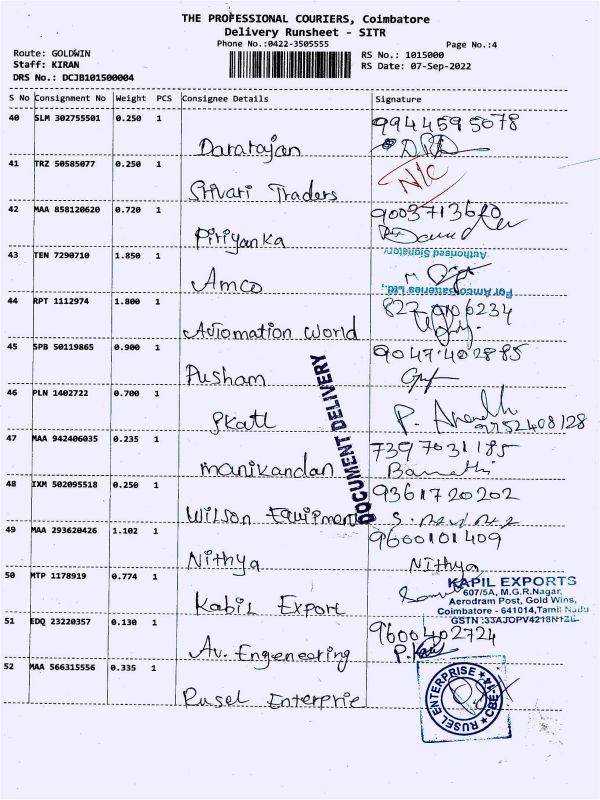 THE PROFESSIONAL COURIERS, Coimbatore
Delivery Runsheet - SITR
Phone No.:0422-3505555
Page No.:4
Route: GOLDWIN
Staff: KIRAN
DRS No.: DCJB101500004
RS No.: 1015000
RS Date: 07-Sep-2022
S No Consignment No Weight PCS Consignee Details Signature
40 SLM 302755501 0.250 1 Dararajan 9944595078
41 TRZ 50585077 0.250 1 Srivari Traders N/C
42 MAA 858120620 0.720 1 Piriyanka
43 TEN 7290710 1.850 1 Amco
Authorised Signatory
For Amco Batteries Ltd.,
44 RPT 1112974 1.800 1 Automation World
45 SPB 50119865 0.900 1 Pusham 9047402885
46 PLN 1402722 0.700 1
47 MAA 942406035 0.235 1 manikandan 7397031185
DOCUMENT DELIVERY
48 IXM 502095518 0.250 1 Wilson Equipment 9361720202
49 MAA 293620426 1.102 1 Nithya 9600101409
Nithya
50 MTP 1178919 0.774 1 Kabil Export
KAPIL EXPORTS
607/5A, M.G.R.Nagar,
Aerodram Post, Gold Wins,
Coimbatore - 641014,Tamil Nadu
51 EDQ 23220357 0.130 1 Av. Engeneering 9600402724
52 MAA 566315556 0.335 1 Rusel Enterprie
RUSEL ENTERPRISE CBE-14